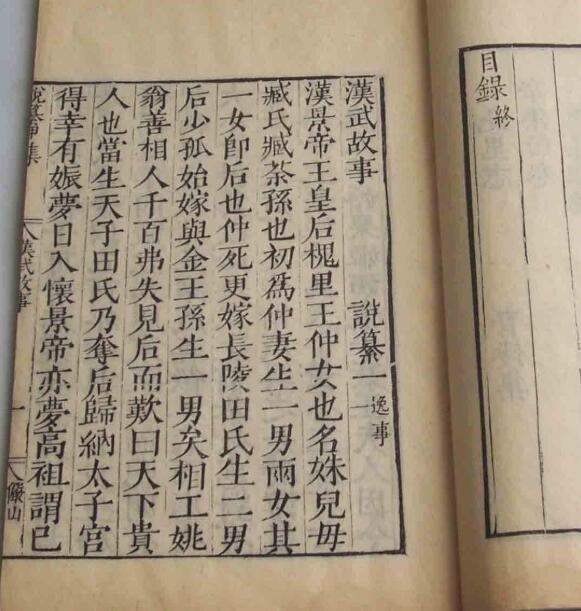 目錄終
漢武故事 說纂一 逸事
漢景帝王皇后槐里王仲女也名姝兒母
臧氏臧荼孫也初爲仲妻生一男兩女其
一女卽后也仲死更嫁長陵田氏生二男
后少孤始嫁與金王孫生一男矣相工姚
翁善相人千百弗失見后而歎曰天下貴
人也當生天子田氏乃奪后歸納太子宮
得幸有娠夢日入懷景帝亦夢高祖謂已
漢武故事 一 儼山